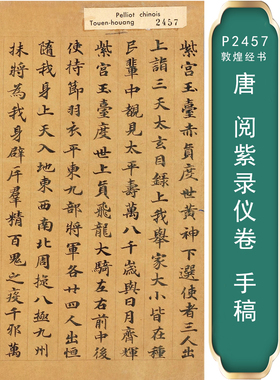 Pelliot chinois
Touen-houang
2457
紫宮玉臺赤貟度世黃神下選使者三人出
上詣三天太玄目録上我舉家大小皆在種
民輩中覩見太平壽萬八千歲與日月齊輝
紫宮玉臺度世上貟飛龍大騎左右前中後
使持節羽玄平東九部將軍各廿四人出恒
隨我身上天入地東西南北周旋八極九州
扶將為我身辟斥羣精百鬼之疫千邪萬
P2457
敦煌经书
唐 阅紫录仪卷 手稿